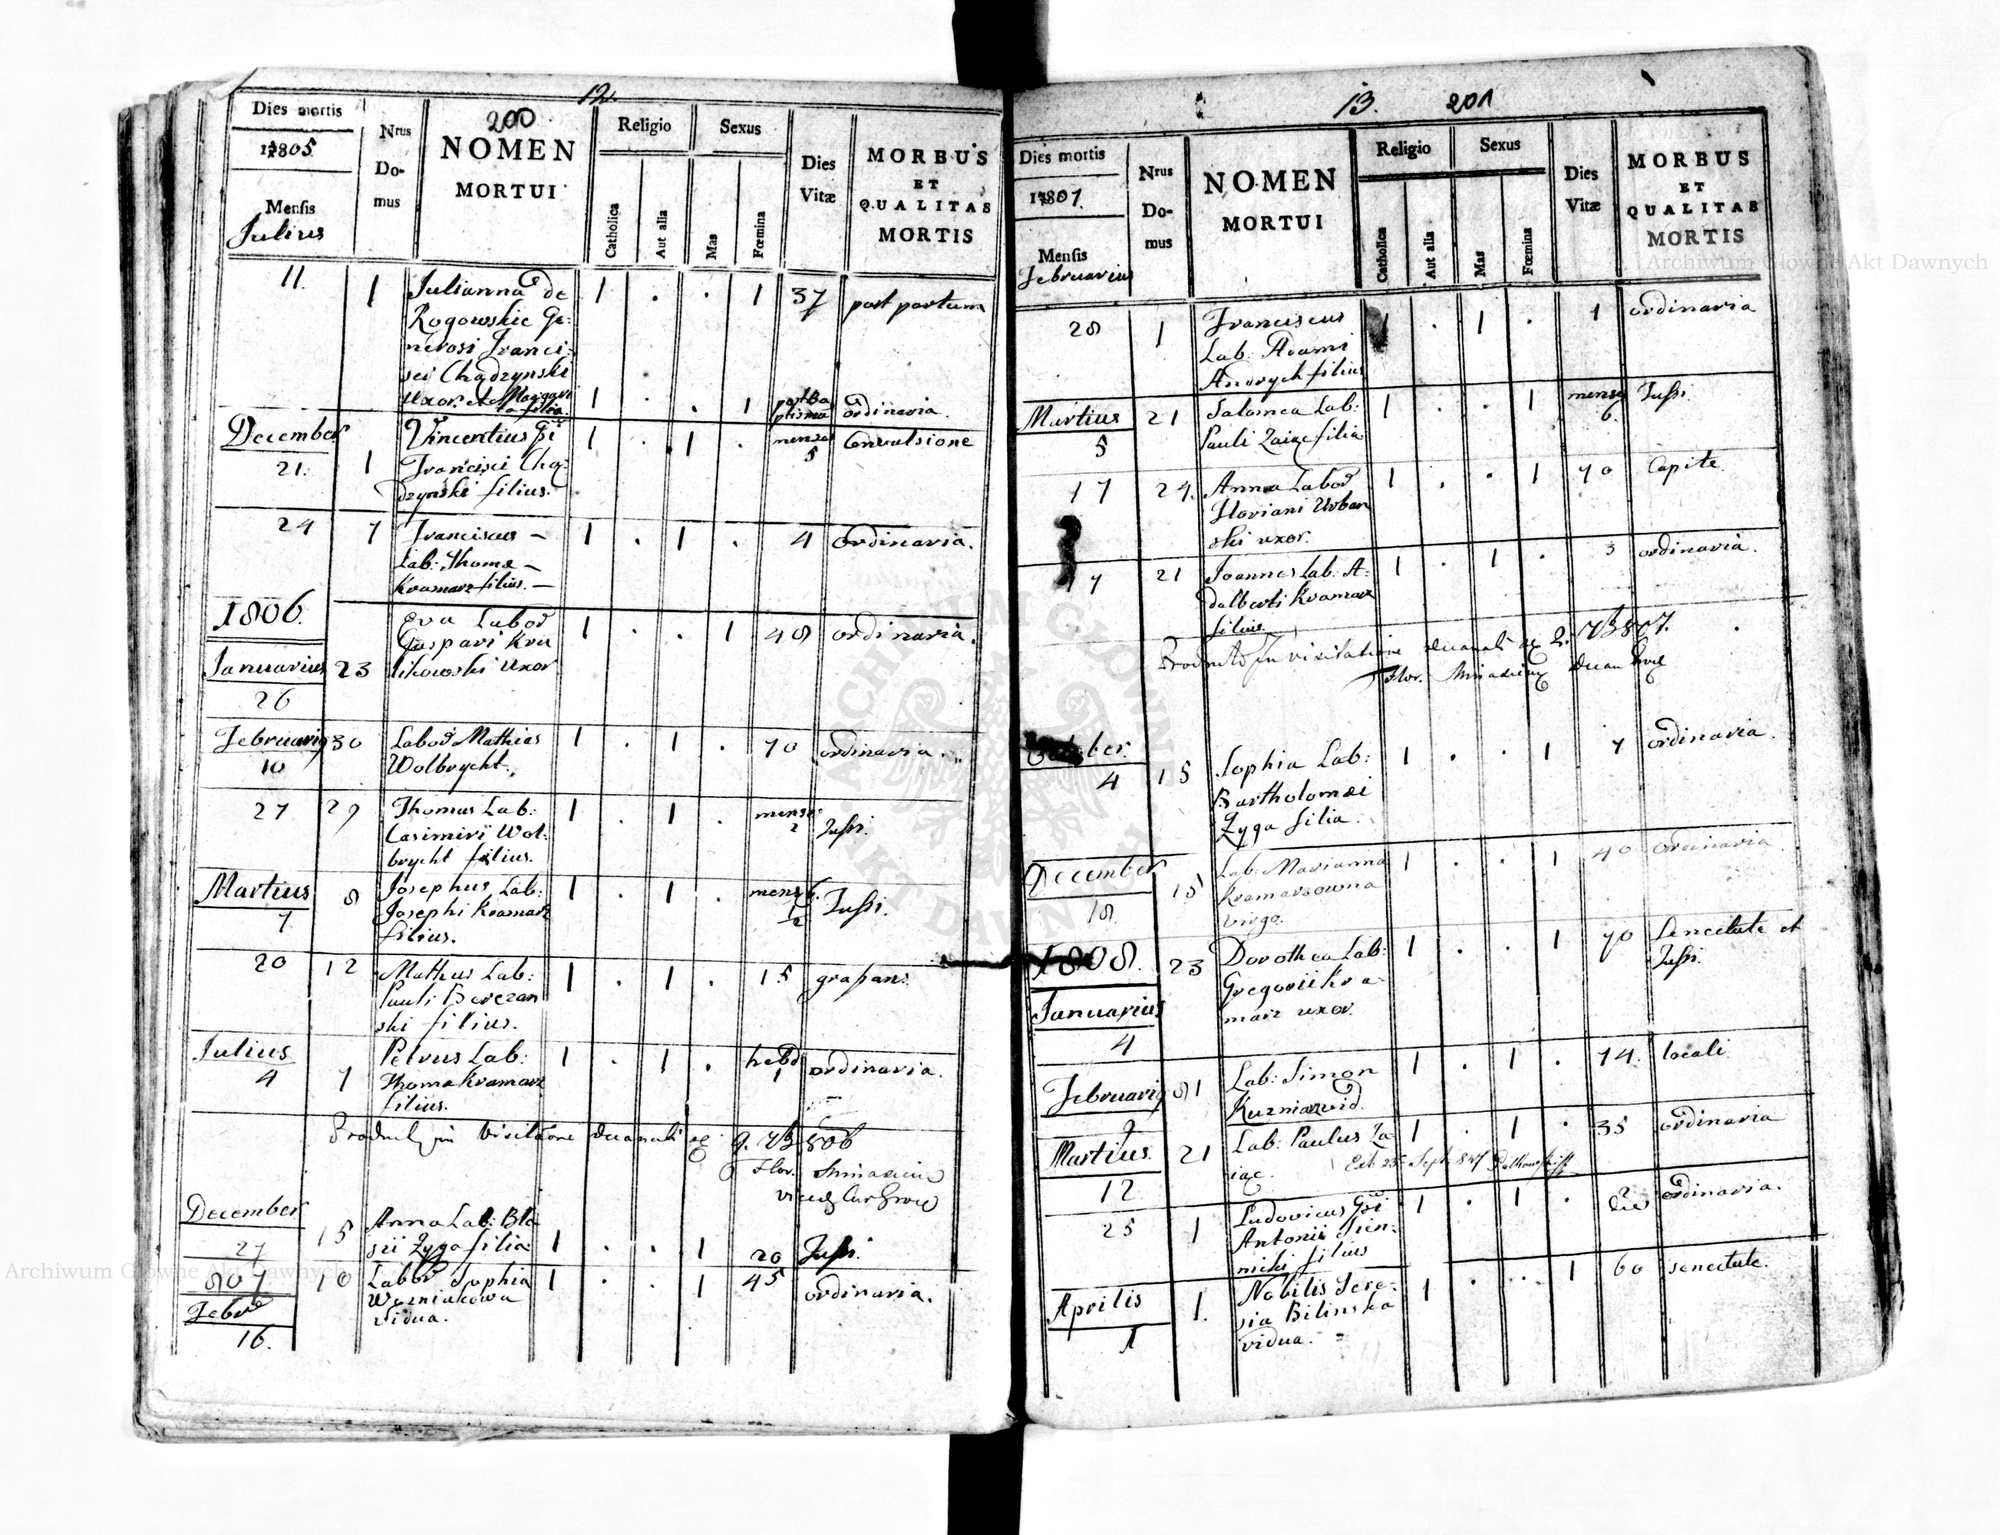 12.
200
Dies mortis
1805.
Mensis
Julius
Nrus Do-mus
NOMEN
MORTUI
Religio
Catholica
Aut alia
Sexus
Mas
Fœmina
Dies
Vitæ
MORBUS
ET
QUALITAS
MORTIS
11. 1 Julianna de 1 . . 1 37 post partum
Rogowskie Ge:
nerosi Franci:
sci Chądzynski
Uxor. et Margari 1 . . 1 post Ba
ta filia ptisma ordinaria.
December Vincentius Gi 1 . 1 . menses Convulsione
21. 1 Francisci Chą- 5
dzynski filius.
24 7 Franciscus – 1 . 1 . 4 ordinaria.
Lab: Thomæ –
Kramarz filius. –
1806. Eva Labod 1 . . 1 48 ordinaria.
Gaspari Kru
Januarius 23 likowski Uxor
26
Februarius 30 Labod Mathias 1 . 1 . 70 ordinaria.
10 Wolbrycht.
27 29 Thomas Lab: 1 . 1 . menses Tussi.
Casimiri Wol- 2
brycht filius.
Martius 8 Josephus Lab: 1 . 1 . mens 6. Tussi.
7 Josephi Kramarz 1/2
filius.
20 12 Matheus Lab: 1 . 1 . 15 grassans.
Pauli Berezan
ski filius.
Julius Petrus Lab: 1 . 1 . hebd ordinaria.
4 7 Thoma Kramarz 1
filius.
in Visitatione Decanali 9. 7b 806
Flor.
December
27 15 Anna Lab: Bla
sii Zyga filia 1 . . 1 20 Tussi.
807 10 Labod Sophia 1 . . 1 45 ordinaria.
Febr Wozniakowa
16. vidua.
13. 201
Dies mortis
1807.
Mensis
Februarius
Nrus Do-mus
NOMEN
MORTUI
Religio
Catholica
Aut alia
Sexus
Mas
Fœmina
Dies
Vitæ
MORBUS
ET
QUALITAS
MORTIS
28 1 Franciscus 1 . 1 . 1 ordinaria
Lab: Adami
Andrych filius
Martius 21 Salomea Lab: 1 . . 1 menses Tussi.
5 Pauli Zaiąc filia 6.
17 24. Anna Labod 1 . . 1 70 Capite.
Floriani Urban
ski uxor.
17 21 Joannes Lab: A- 1 . 1 . 3 ordinaria.
dalberti Kramarz
filius.
in visitatione decanali 2. 7b 807.
Flor.
October. Sophia Lab: 1 . . 1 7 ordinaria.
4 15 Bartholomæi
Zyga filia.
December Lab: Marianna 1 . . 1 40 ordinaria
18. 15 Kramarzowna
virgo.
1808. 23 Dorothea Lab: 1 . . 1 70 Senectute et
Gregorii Kra- Tussi.
Januarius marz uxor.
4
Februarius 81 Lab: Simon 1 . 1 . 74. locali.
9 Kuzniar vid.
Martius. 21 Lab: Paulus Za- 1 . 1 . 35 ordinaria
12 iąc.
25 1 Ludovicus Gsi 1 . 1 . 2 ordinaria.
Antonii Sien- die
nicki filius
Aprilis 1. Nobilis Tere- 1 . . 1 60 senectute.
1 sia Bilinska
vidua.
ARCHIWUM GŁÓWNE AKT DAWNYCH
Archiwum Główne Akt Dawnych
Archiwum Główne Akt Dawnych